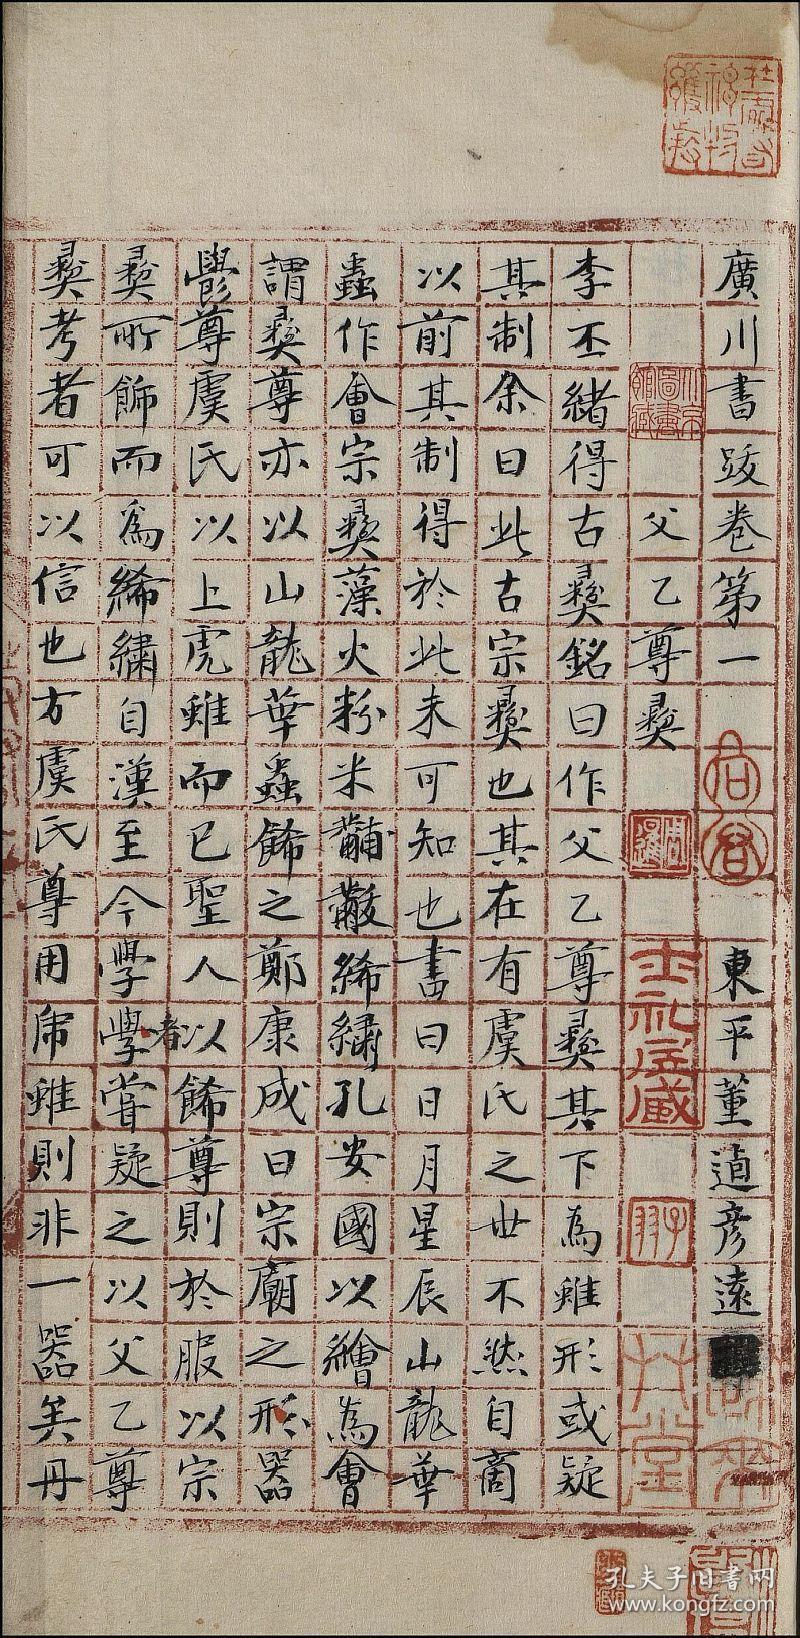 廣川書跋卷第一 東平董逌彥遠
父乙尊彝
李丕緒得古彝銘曰作父乙尊彝其下為雖形或疑
其制余曰此古宗彝也其在有虞氏之世不然自商
以前其制得於此未可知也書曰日月星辰山龍華
蟲作會宗彝藻火粉米黼黻絺繡孔安國以繪為會
謂彝尊亦以山龍華蟲飾之鄭康成曰宗廟之形器
鬱尊虞氏以上虎雖而已聖人以飾尊則於服以宗
彝所飾而為絺繡自漢至今學學者嘗疑之以父乙尊
彝考者可以信也方虞氏尊用虎雖則非一器矣丹
北京圖書館藏
周暹
孔夫子旧书网
www.kongfz.com